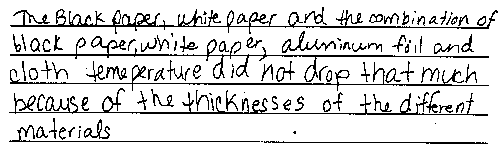 The Black paper, white paper and the combination of
black paper, white paper, aluminum foil and
cloth temeperature did not drop that much
because of the thicknesses of the different
materials